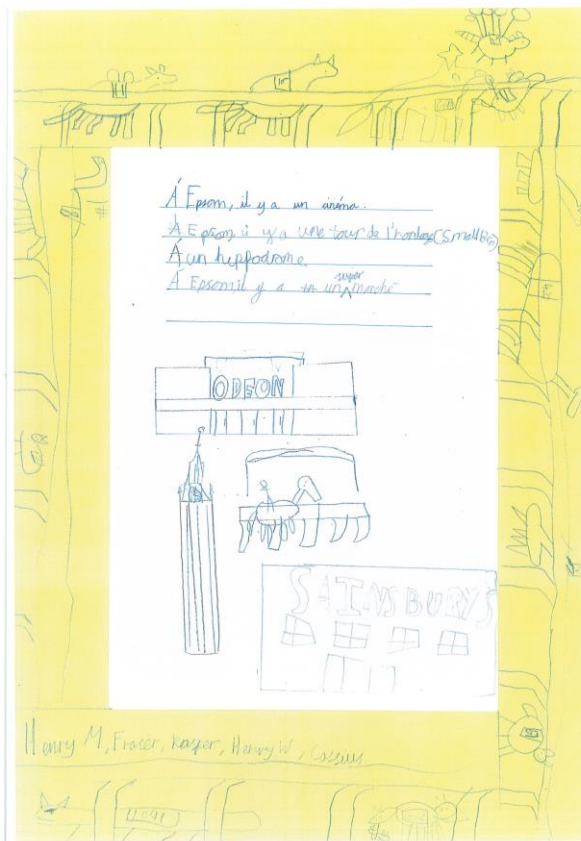 Á Epsom, il y a un cinéma.
À Epsom, il y a une tour de l'horloge (Small Ben)
Á un hippodrome.
Á Epsom, il y a un super marché
ODEON
SAINSBURYS
Henry M, Fraser, Kasper, Henry W, Cassius.